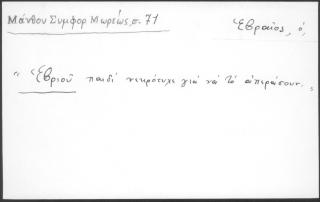 Μάνθου Συμφορ Μωρέως, σ. 71
Ἑβραῖος, ὁ,
" Ἑβριοῦ παιδί νεκρότυχε γιά νά τό ἀπεράσουν.,